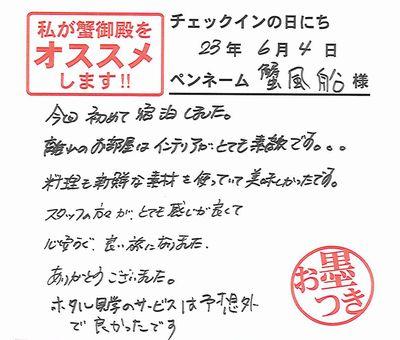 私が蟹御殿を
オススメ
します!!
チェックインの日にち
23年 6月 4日
ペンネーム 蟹風船 様
今回初めて宿泊しました。
離れのお部屋はインテリアがとても素敵です。。。
料理も新鮮な素材を使っていて美味しかったです。
スタッフの方々が、とても感じが良くて
心安らぐ、良い旅になりました。
ありがとうございました。
ホタル見学のサービスは予想外
で良かったです
お墨つき